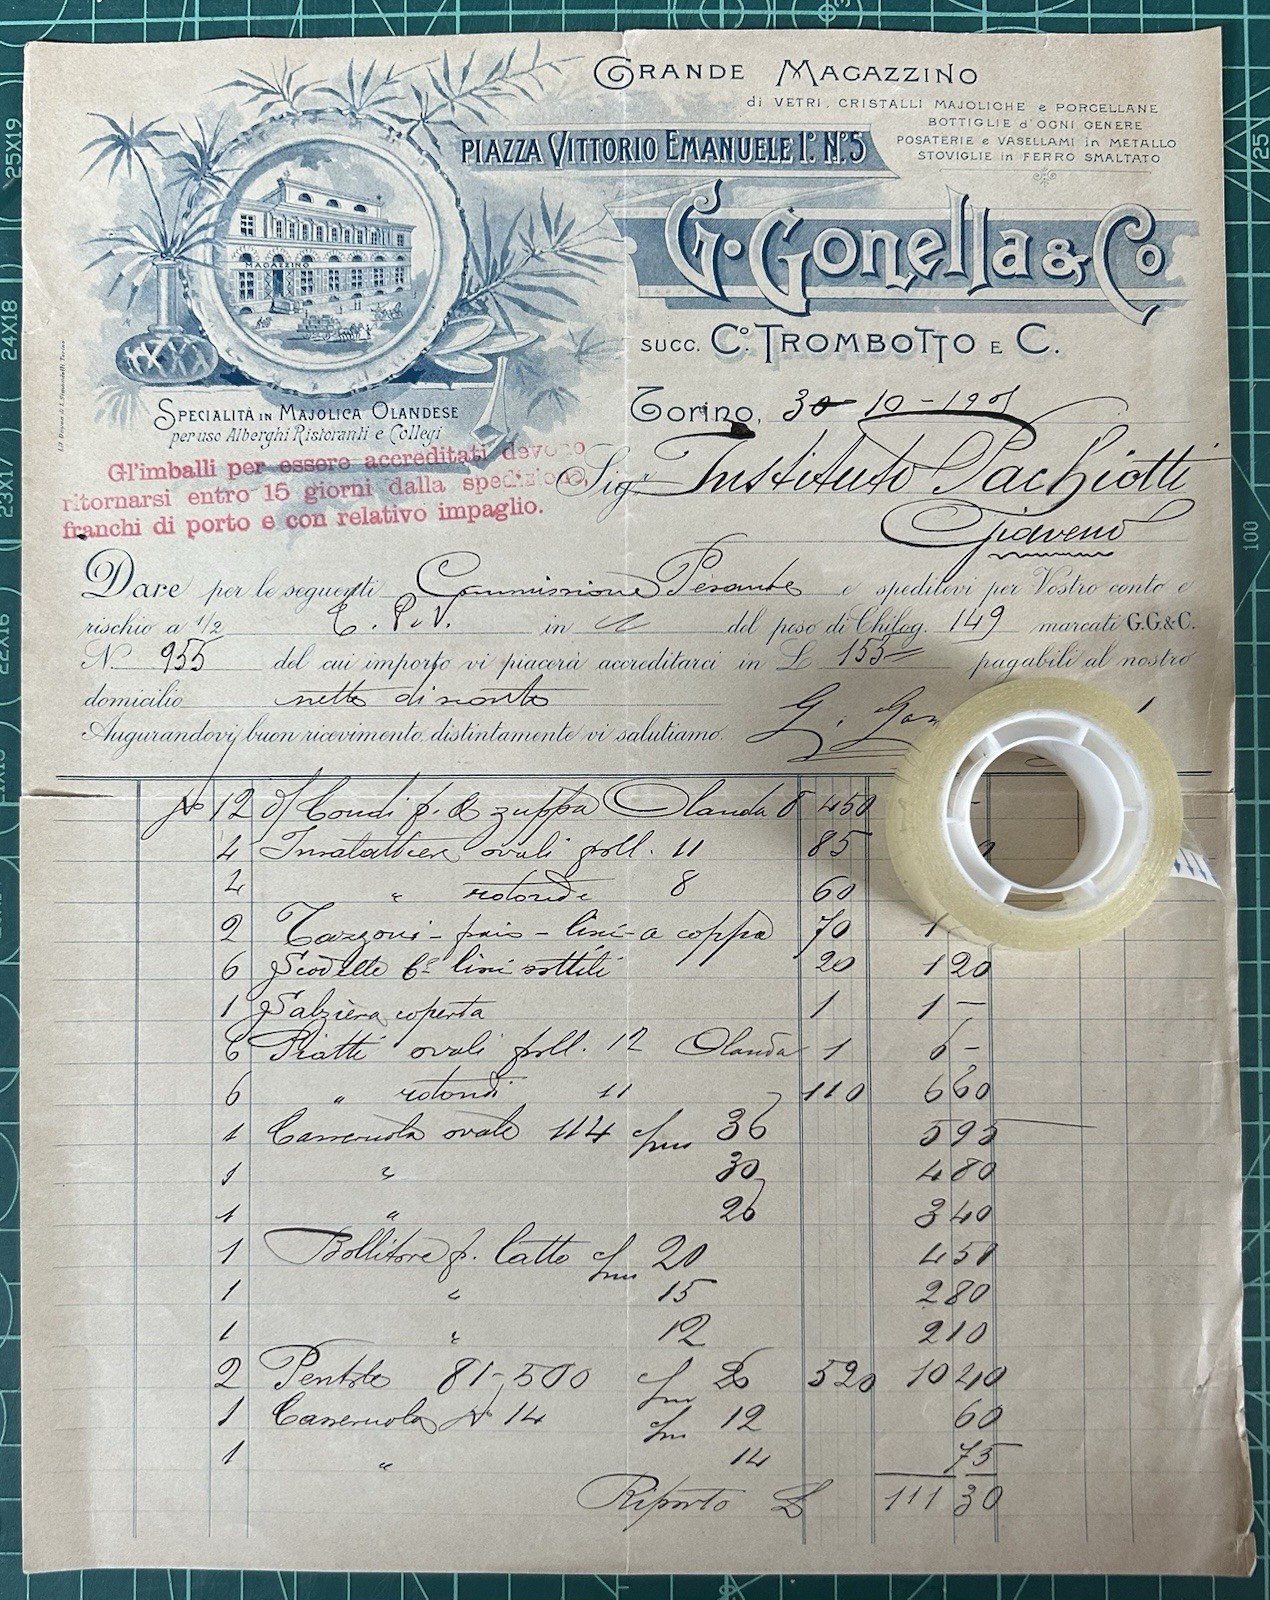 GRANDE MAGAZZINO
di VETRI, CRISTALLI MAJOLICHE e PORCELLANE
BOTTIGLIE d'OGNI GENERE
POSATERIE e VASELLAMI in METALLO
STOVIGLIE in FERRO SMALTATO
PIAZZA VITTORIO EMANUELE I.º N.º 5
G. Gonella & Co
SUCC. Cº. TROMBOTTO E C.
MAGAZZINO
SPECIALITÀ IN MAJOLICA OLANDESE
per uso Alberghi Ristoranti e Collegi
Torino, 30-10-190
Gl'imballi per essere accreditati devono
ritornarsi entro 15 giorni dalla spedizione,
franchi di porto e con relativo impaglio.
Sigr. Instituto Pachiotti
Giaveno
Dare per le seguenti Commissione Pesante e speditevi per Vostro conto e
rischio a 1/2 in del peso di Chilog. 149 marcati G.G.& C.
N. 955 del cui importo vi piacerà accreditarci in L 155 pagabili al nostro
domicilio netto di sconto
Augurandovi buon ricevimento, distintamente vi salutiamo.
G.
No 12 Tondi p. zuppa Olanda 450
4 Insalattiere ovali poll. 11 85
2 " rotonde 8 60
2 Tazzoni - - lini - a coppa 70 1
6 Scodelle lini sottili 20 1 20
1 Salziera coperta 1 1 -
6 Piatti ovali poll. 12 Olanda 1 6 -
6 " rotondi 11 110 6 60
1 Casseruola ovale 114 c/m 36 5 95
1 " 30 4 80
1 " 26 3 40
1 Bollitore p. latte c/m 20 4 50
1 " 15 2 80
1 " 12 2 10
2 Pentole 81-500 c/m 26 520 10 40
1 Casseruola No 14 c/m 12 60
1 " 14 75
Riporto L 111 30